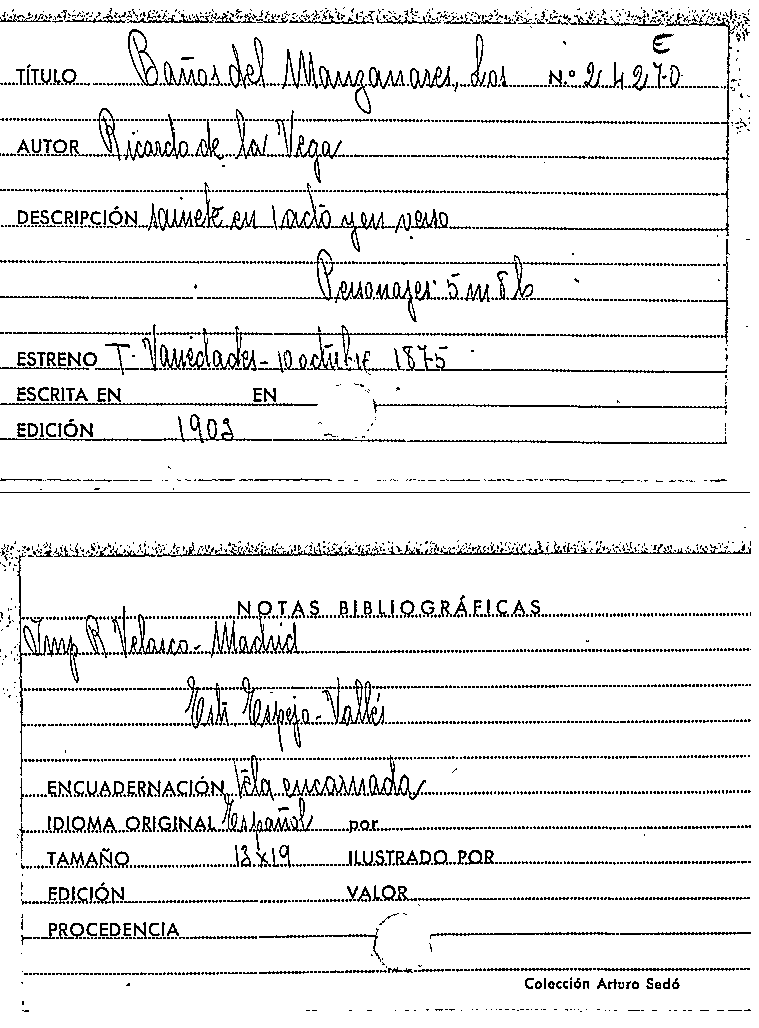 E
TÍTULO Baños del Manzanares, Los N.º 24270
AUTOR Ricardo de la Vega
DESCRIPCIÓN sainete en 1 acto y en verso
Personajes: 5 m 8 h
ESTRENO T. Variedades - 10 octubre 1875
ESCRITA EN EN
EDICIÓN 1903
NOTAS BIBLIOGRÁFICAS
Imp R Velasco - Madrid
Espejo - Vallés
ENCUADERNACIÓN tela encarnada
IDIOMA ORIGINAL Español por
TAMAÑO 13 x 19 ILUSTRADO POR
EDICIÓN VALOR
PROCEDENCIA
Colección Arturo Sedó